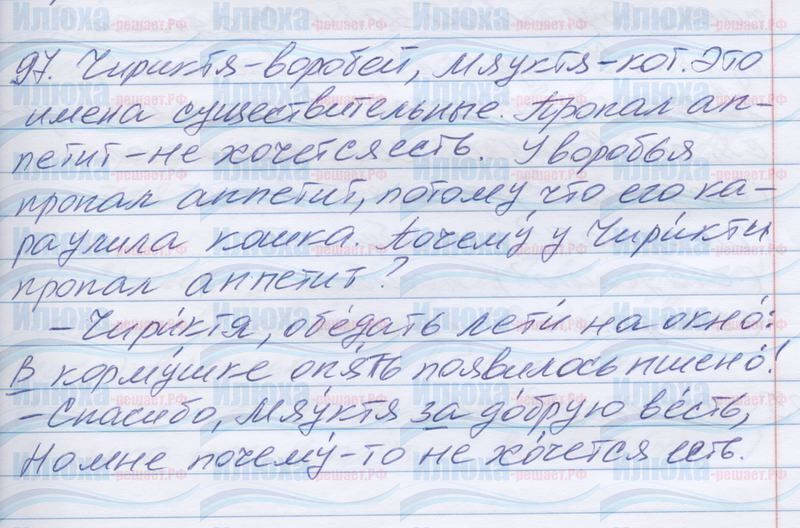 97. Чириктя-воробей, Мяуктя-кот. Это
имена существительные. Пропал ап-
петит-не хочется есть. У воробья
пропал аппетит, потому что его ка-
раулила кошка. Почему́ у Чири́кты
пропал аппетит?
-Чири́ктя, обе́дать лети́ на окно́:
В корму́шке опя́ть появи́лось пшено́!
-Спаси́бо, Мяу́ктя за до́брую ве́сть,
Но мне почему́-то не хо́чется есть.